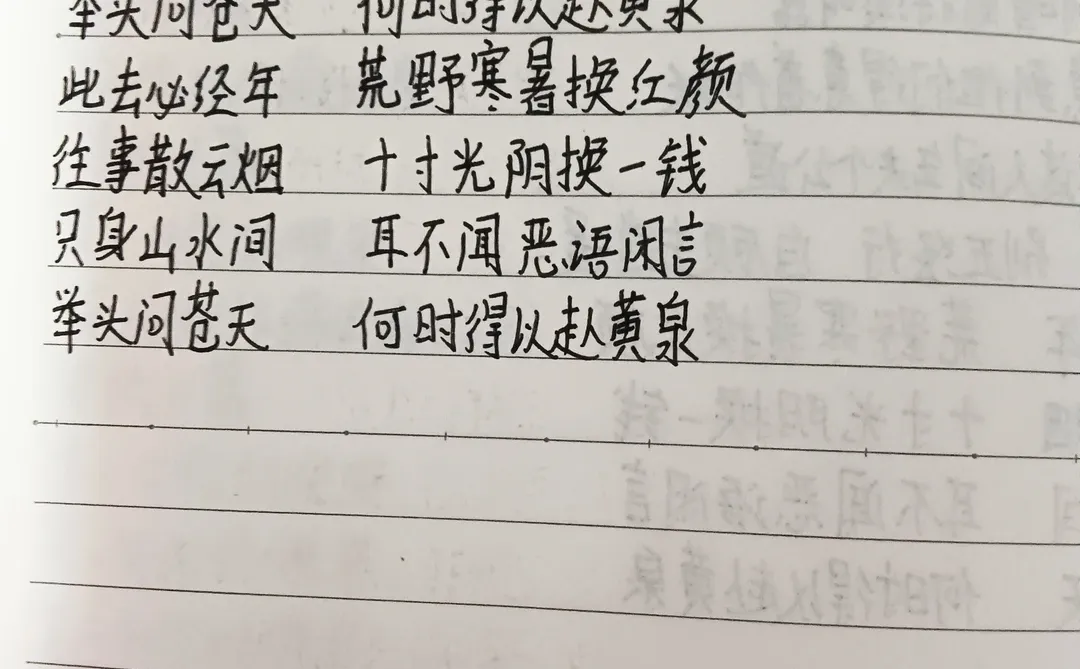 举头问苍天 何时得以赴黄泉
此去必经年 荒野寒暑换红颜
往事散云烟 十寸光阴换一钱
只身山水间 耳不闻恶语闲言
举头问苍天 何时得以赴黄泉